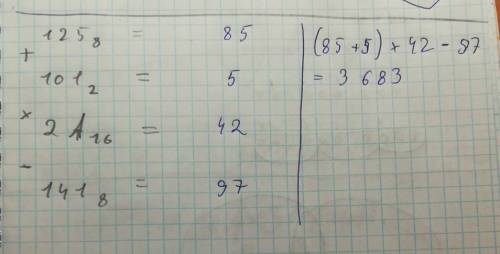 125₈ = 85
+
101₂ = 5
×
2A₁₆ = 42
-
141₈ = 97
(85 + 5) × 42 - 97
= 3 683